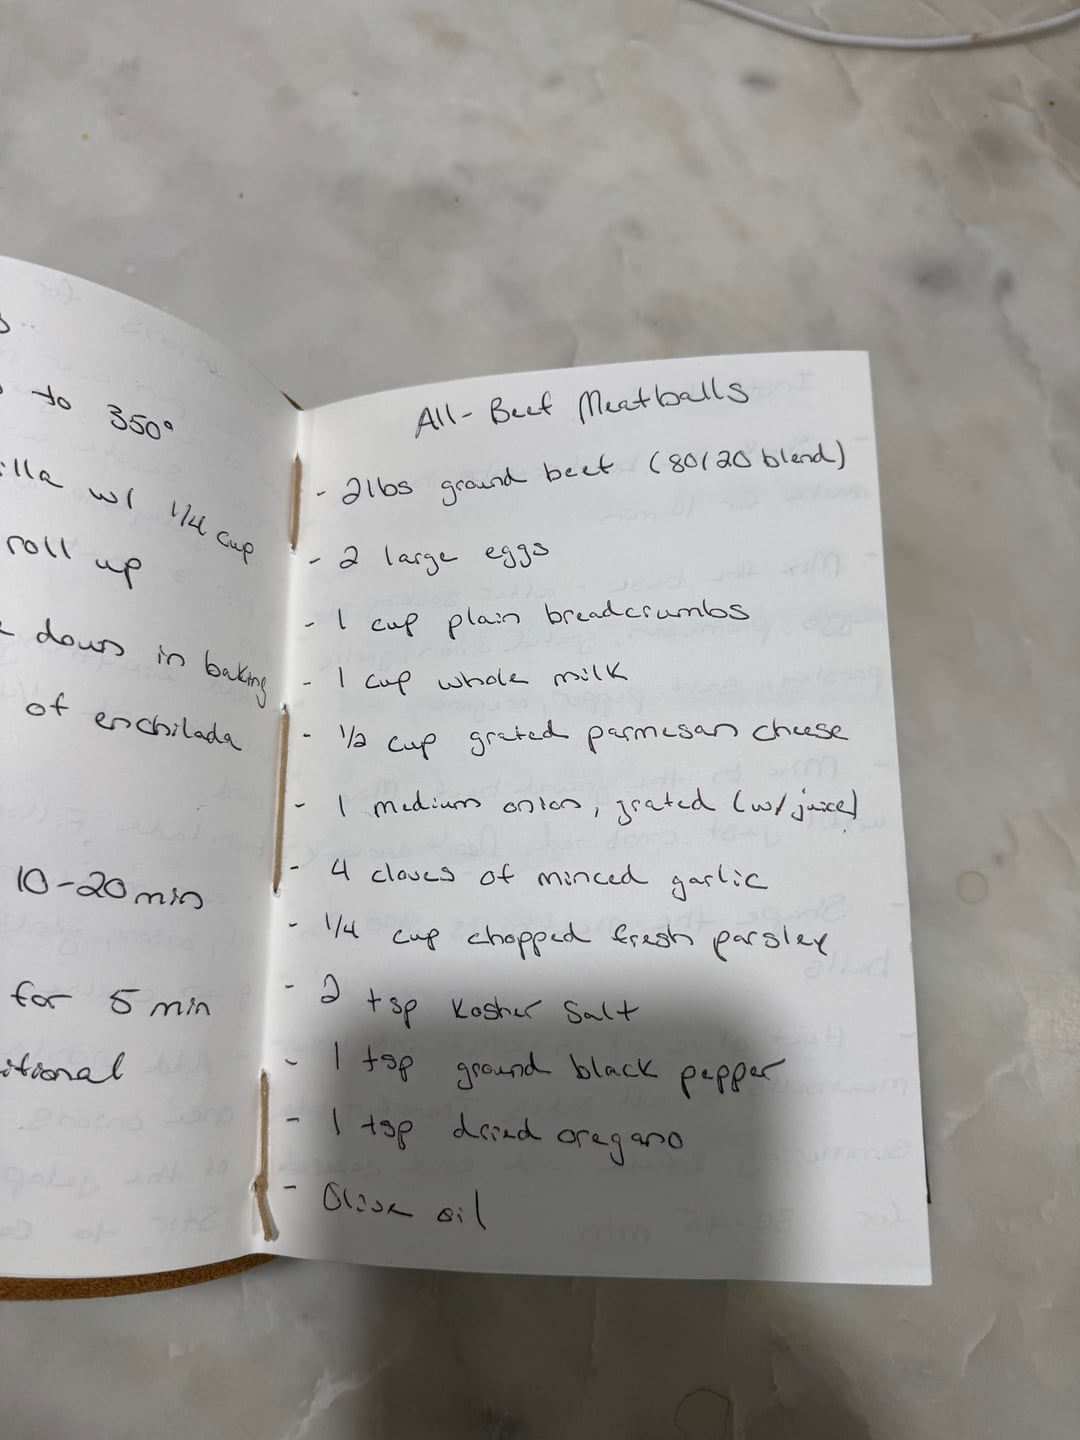 to 350°
w/ 1/4 cup
roll up
down in baking
of enchilada
10-20 min
for 5 min
All-Beef Meatballs
- 2lbs ground beef (80/20 blend)
- 2 large eggs
- 1 cup plain breadcrumbs
- 1 cup whole milk
- 1/2 cup grated parmesan cheese
- 1 medium onion, grated (w/juice)
- 4 cloves of minced garlic
- 1/4 cup chopped fresh parsley
- 2 tsp Kosher Salt
- 1 tsp ground black pepper
- 1 tsp dried oregano
- Olive oil